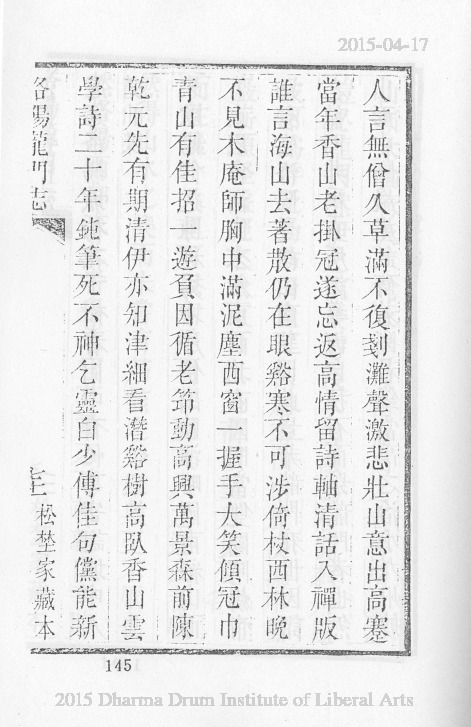 2015-04-17
人言無僧久草滿不復剗灘聲激悲壯山意出高蹇
當年香山老掛冠遂忘返高情留詩軸清話入禪版
誰言海山去著散仍在眼谿寒不可涉倚杖西林晚
不見木庵師胸中滿泥塵西窗一握手大笑傾冠巾
青山有佳招一遊負因循老筇動高興萬景森前陳
乾元先有期清伊亦知津細看潛谿樹高臥香山雲
學詩二十年鈍筆死不神乞靈白少傅佳句儻能新
洛陽龍門志
松埜家藏本
145
2015 Dharma Drum Institute of Liberal Arts